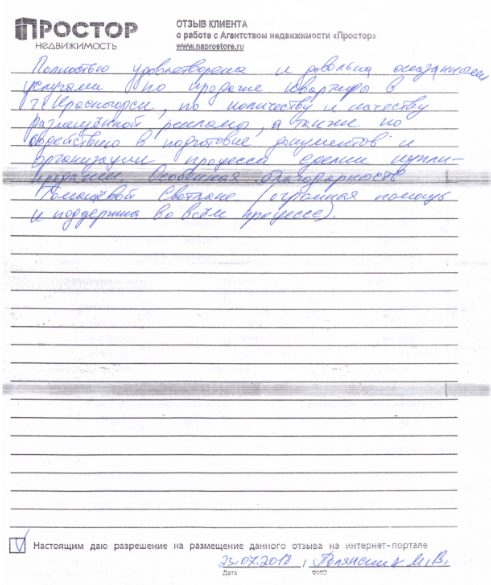 ПРОСТОР
НЕДВИЖИМОСТЬ
ОТЗЫВ КЛИЕНТА
о работе с Агентством недвижимости «Простор»
www.naprostore.ru
Полностью удовлетворена и довольна оказанными
услугами по продаже квартиры в
г. Красногорск, по количеству и качеству
размещённой рекламы, а также по
содействию в подготовке документов и
организации процесса сделки купли-
продажи. Особенная благодарность
Светлане (огромная помощь
и поддержка во всём процессе).
Настоящим даю разрешение на размещение данного отзыва на интернет-портале
23.07.2018 М.В.
Дата ФИО